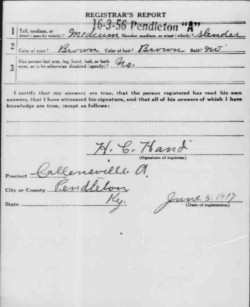 REGISTRAR'S REPORT
16-3-56 Pendleton "A"
1 Tall, medium, or short (specify which)? Medium Slender, medium, or stout (which)? Slender
2 Color of eyes? Brown Color of hair? Brown Bald? No
3 Has person lost arm, leg, hand, foot, or both eyes, or is he otherwise disabled (specify)? No.
I certify that my answers are true, that the person registered has read his own
answers, that I have witnessed his signature, and that all of his answers of which I have
knowledge are true, except as follows:
H. C. Hand
(Signature of registrar)
Precinct Callensville A.
City or County Pendleton
State Ky. June 5, 1917
(Date of registration)